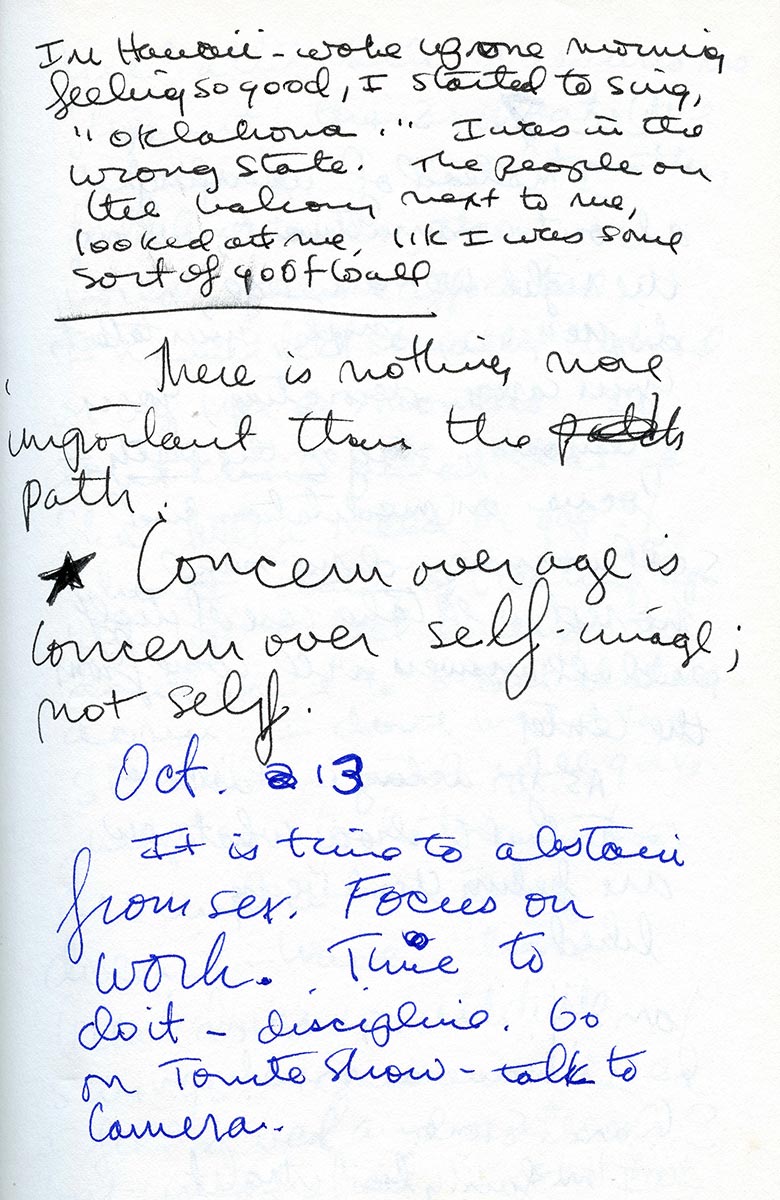 In Hawaii - woke up one morning
feeling so good, I started to sing,
"Oklahoma." I was in the
wrong State. The people on
the balcony next to me,
looked at me, lik I was some
sort of goofball
There is nothing more
important than the
path.
★ Concern over age is
concern over self-image;
not self.
Oct. 13
It is time to abstain
from sex. Focus on
work. Time to
do it - discipline. Go
on Tonite Show - talk to
Camera.